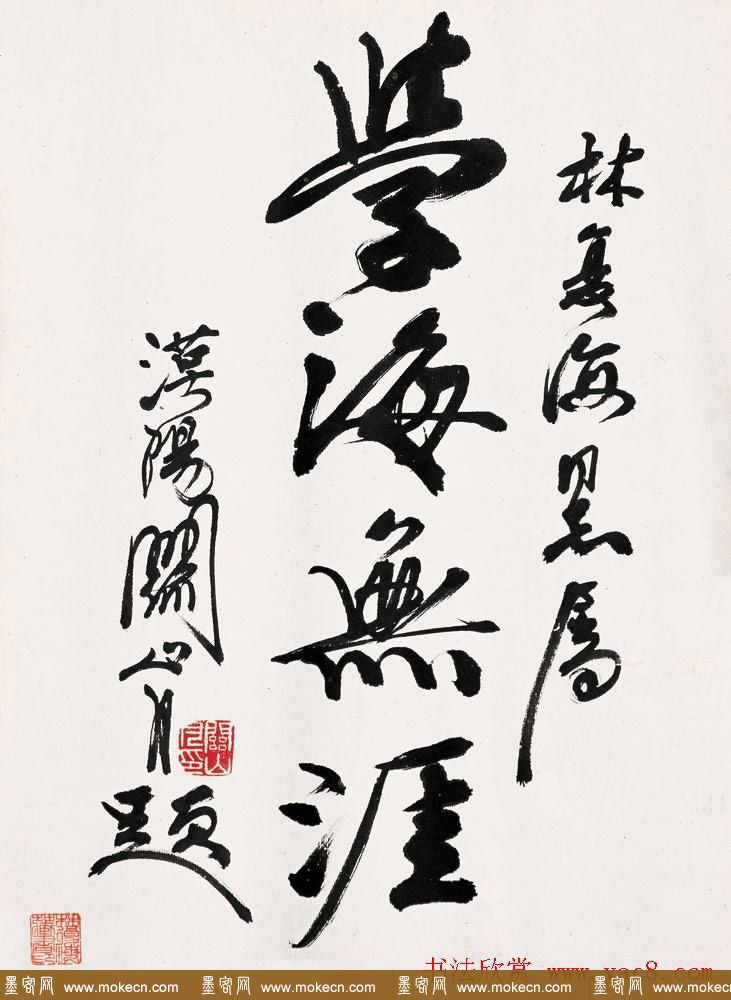 林海同志属
學海無涯
漠陽關山月題
關山月印
书法欣赏 www.yac8.com
墨客网 www.mokecn.com 墨客网 www.mokecn.com 墨客网 www.mokecn.com 墨客网 www.mokecn.com